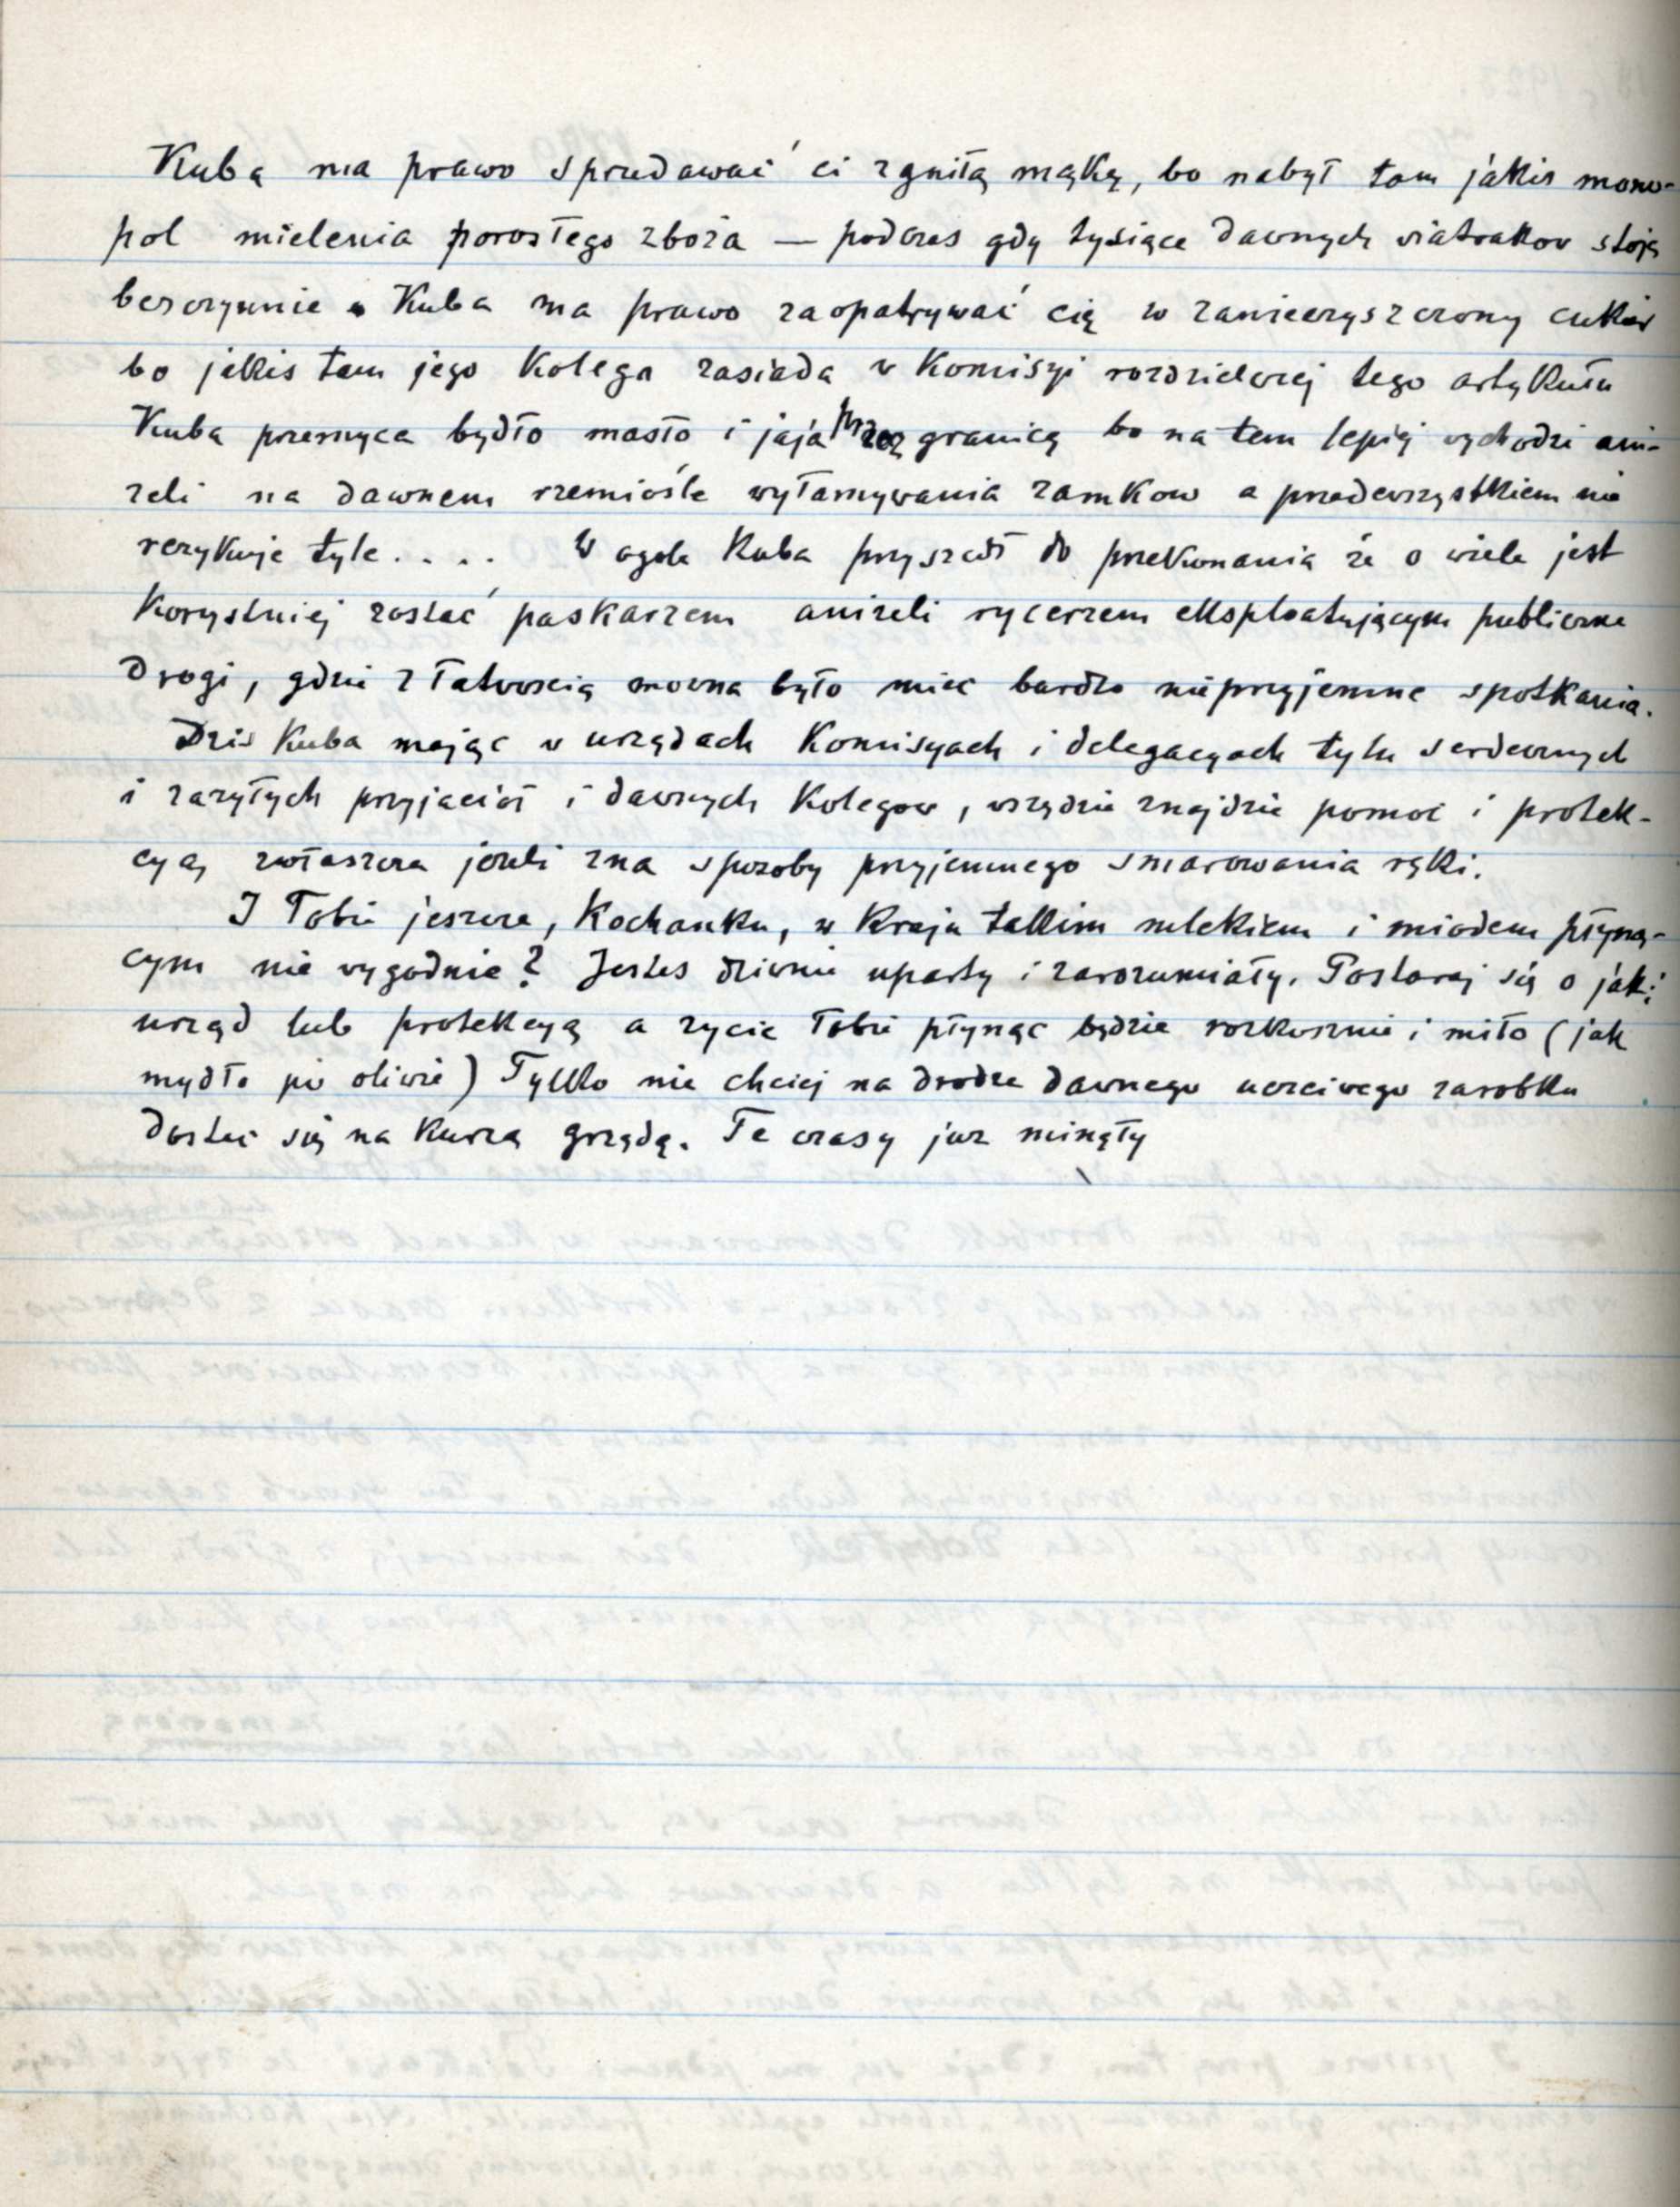 Kuba ma prawo sprzedawać ci zgniłą mąkę, bo nabył tam jakis mono-
pol mielenia porosłego zboża — podczas gdy tysiące dawnych wiatrakow stoją
bezczynnie. Kuba ma prawo zaopatrywać cię w zanieczyszczony cukier
bo jakis tam jego kolega zasiada w Komisyi rozdzielczej tego artykułu
Kuba przemyca bydło masło i jaja przez granicę bo na tem lepiej wychodzi ani-
zeli na dawnem rzemiośle wyłamywania zamkow a przedewszystkiem nie
rezykuje tyle.... W ogole Kuba przyszedł do przekonania że o wiele jest
korzystniej zostać paskarzem anizeli rycerzem eksploatującym publiczne
drogi, gdzie z łatwoscią mozna było miec bardzo nieprzyjemne spotkania.
Dzis Kuba mając w urzędach Komisyach i delegacyach tylu serdecznych
i zazyłych przyjaciół i dawnych kolegow, wszędzie znajdzie pomoc i protek-
cyę, zwłaszcza jezeli zna sposoby przyjemnego smarowania ręki.
I Tobie jeszcze, Kochanku, w Kraju takim mlekiem i miodem płyną-
cym nie wygodnie? Jestes dziwnie uparty i zarozumiały. Postaraj się o jakiś
urząd lub protekcyę a zycie Tobie płynąc będzie rozkosznie i miło (jak
mydło po oliwie) Tylko nie chciej na drodze dawnego uczciwego zarobku
dostać się na kurzą grzędę. Te czasy juz minęły